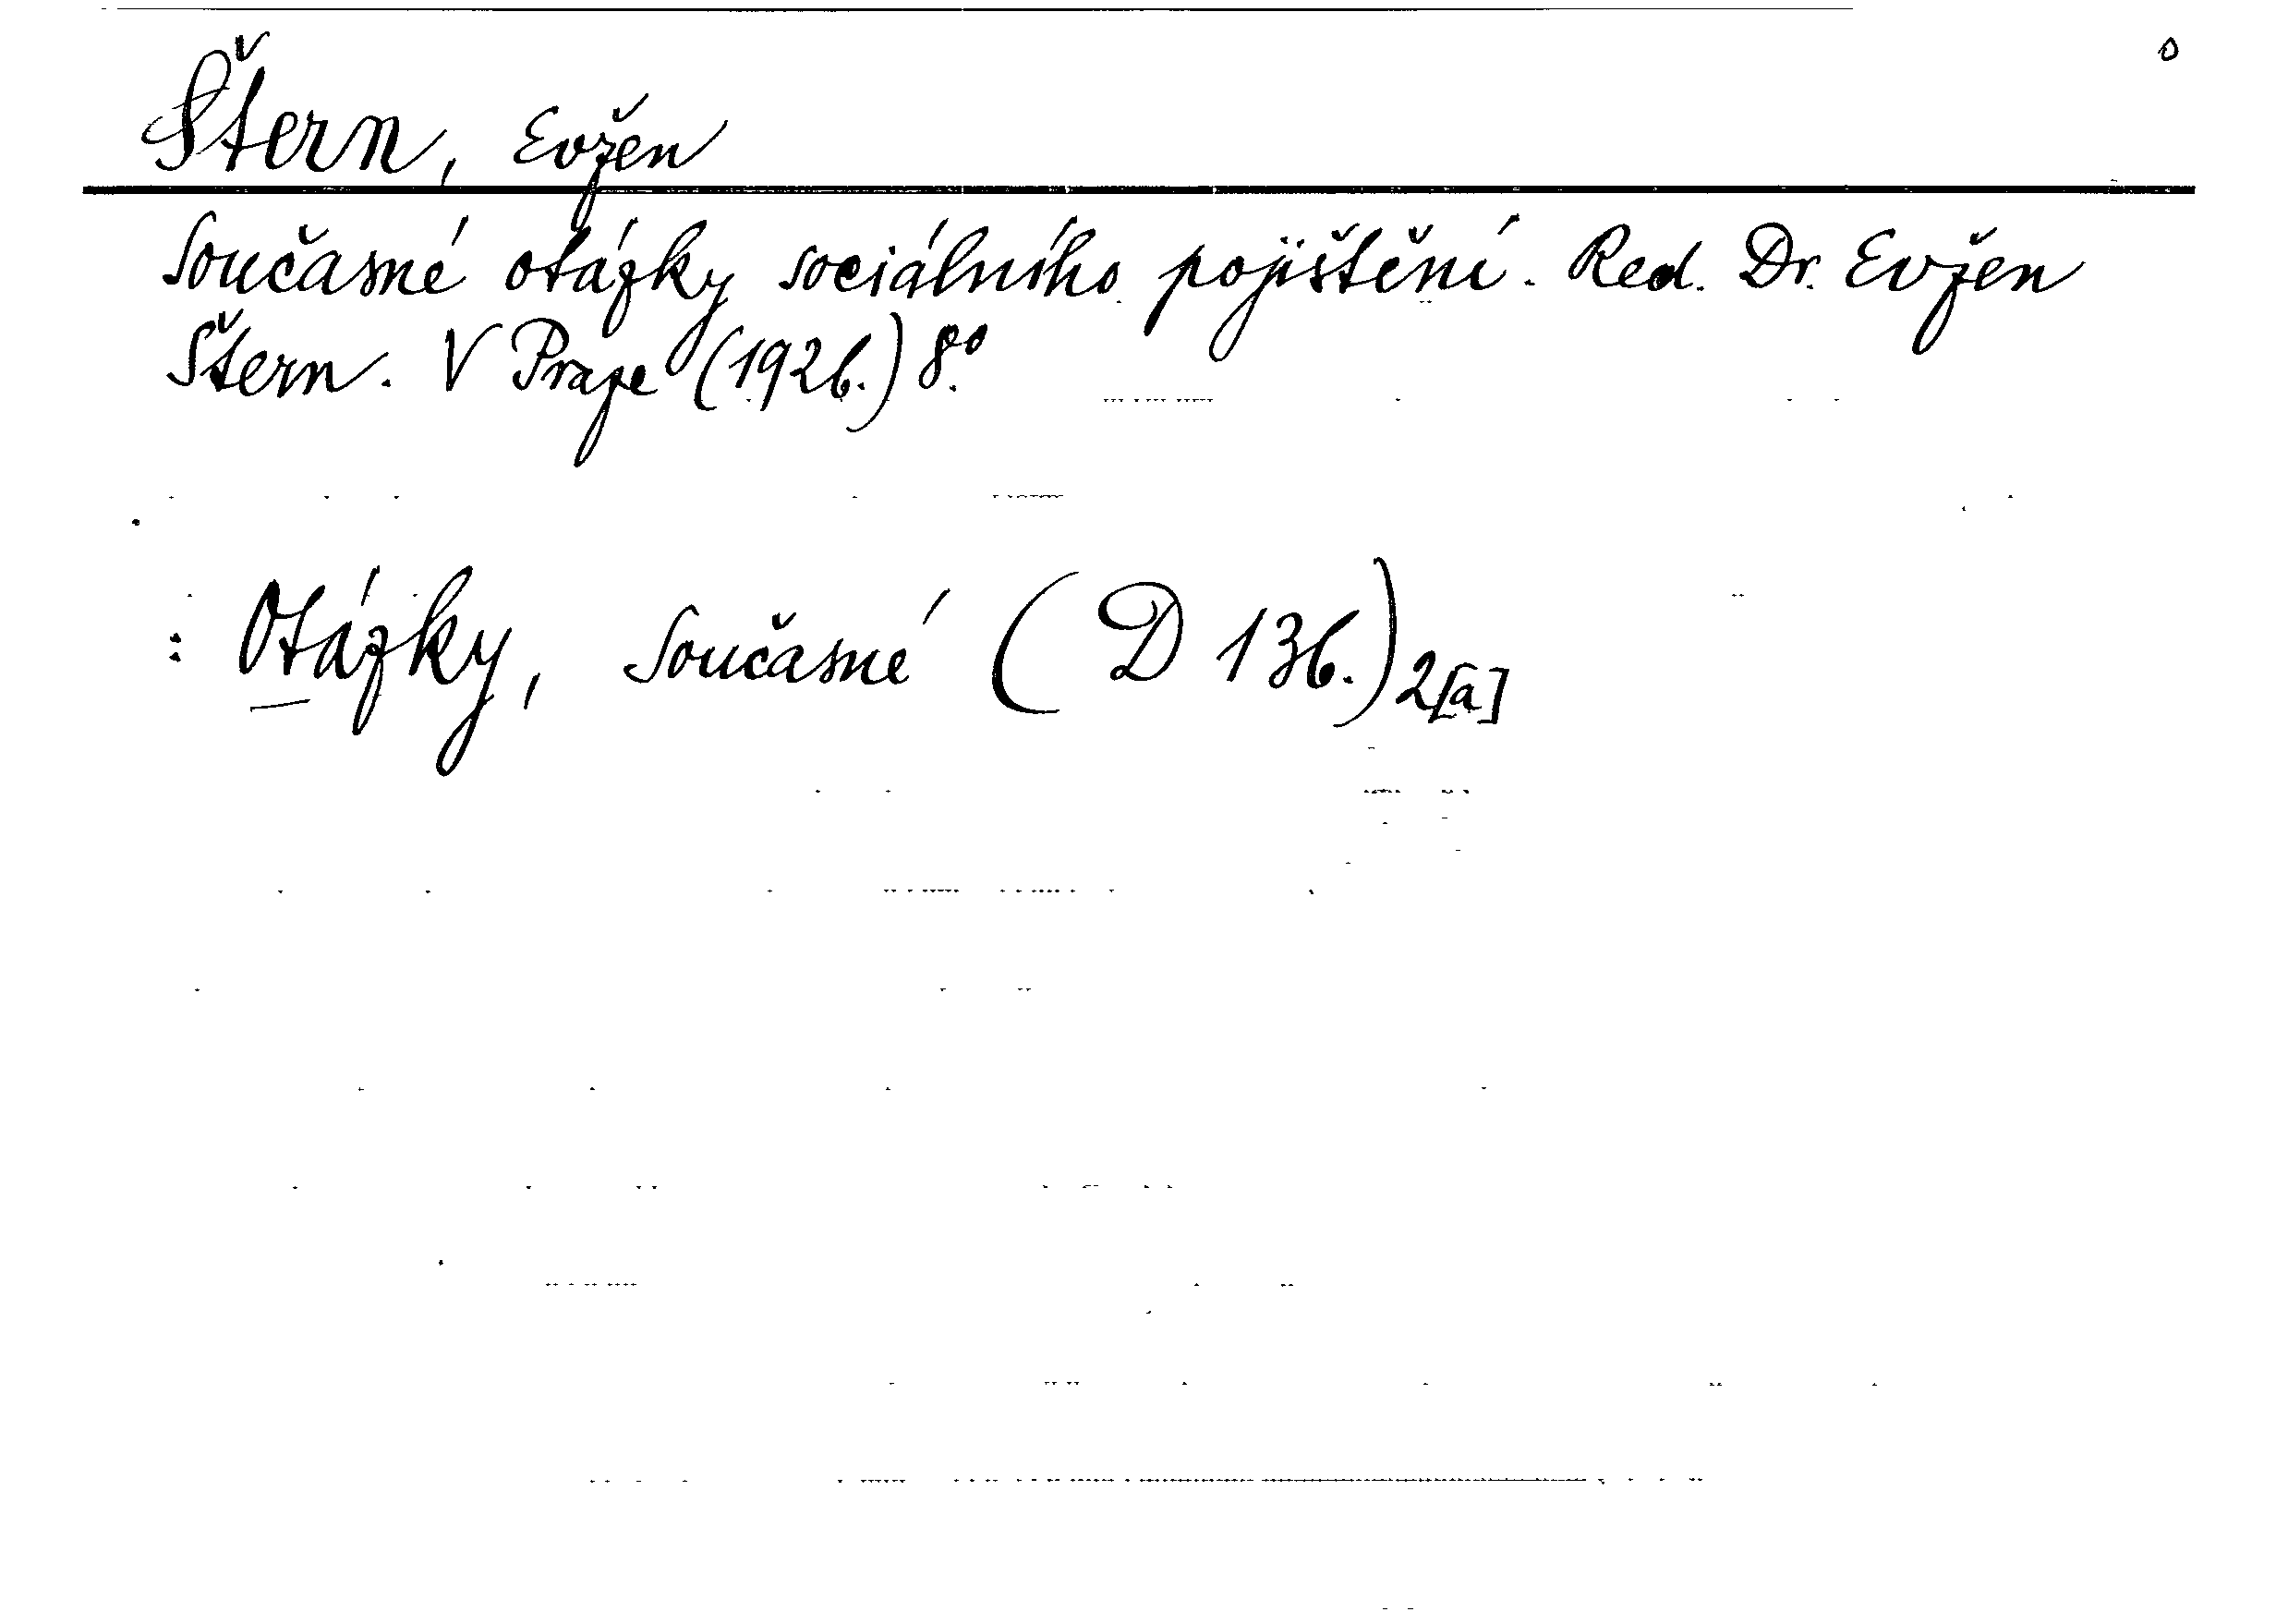 Štern, Evžen
Současné otázky sociálního pojištění. Red. Dr. Evžen
Štern. V Praze (1926.) 8°.
: Otázky, současné (D 136.) 2[a]